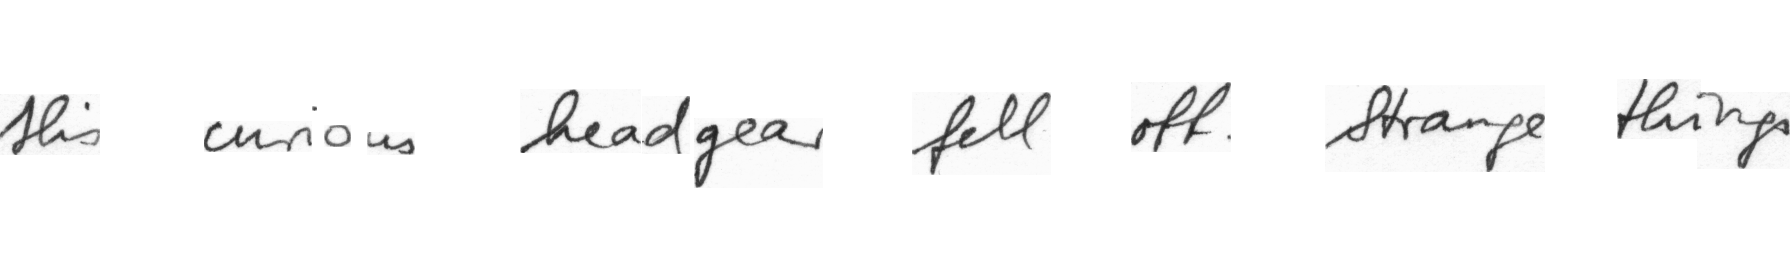 this curious headgear fell off. Strange things